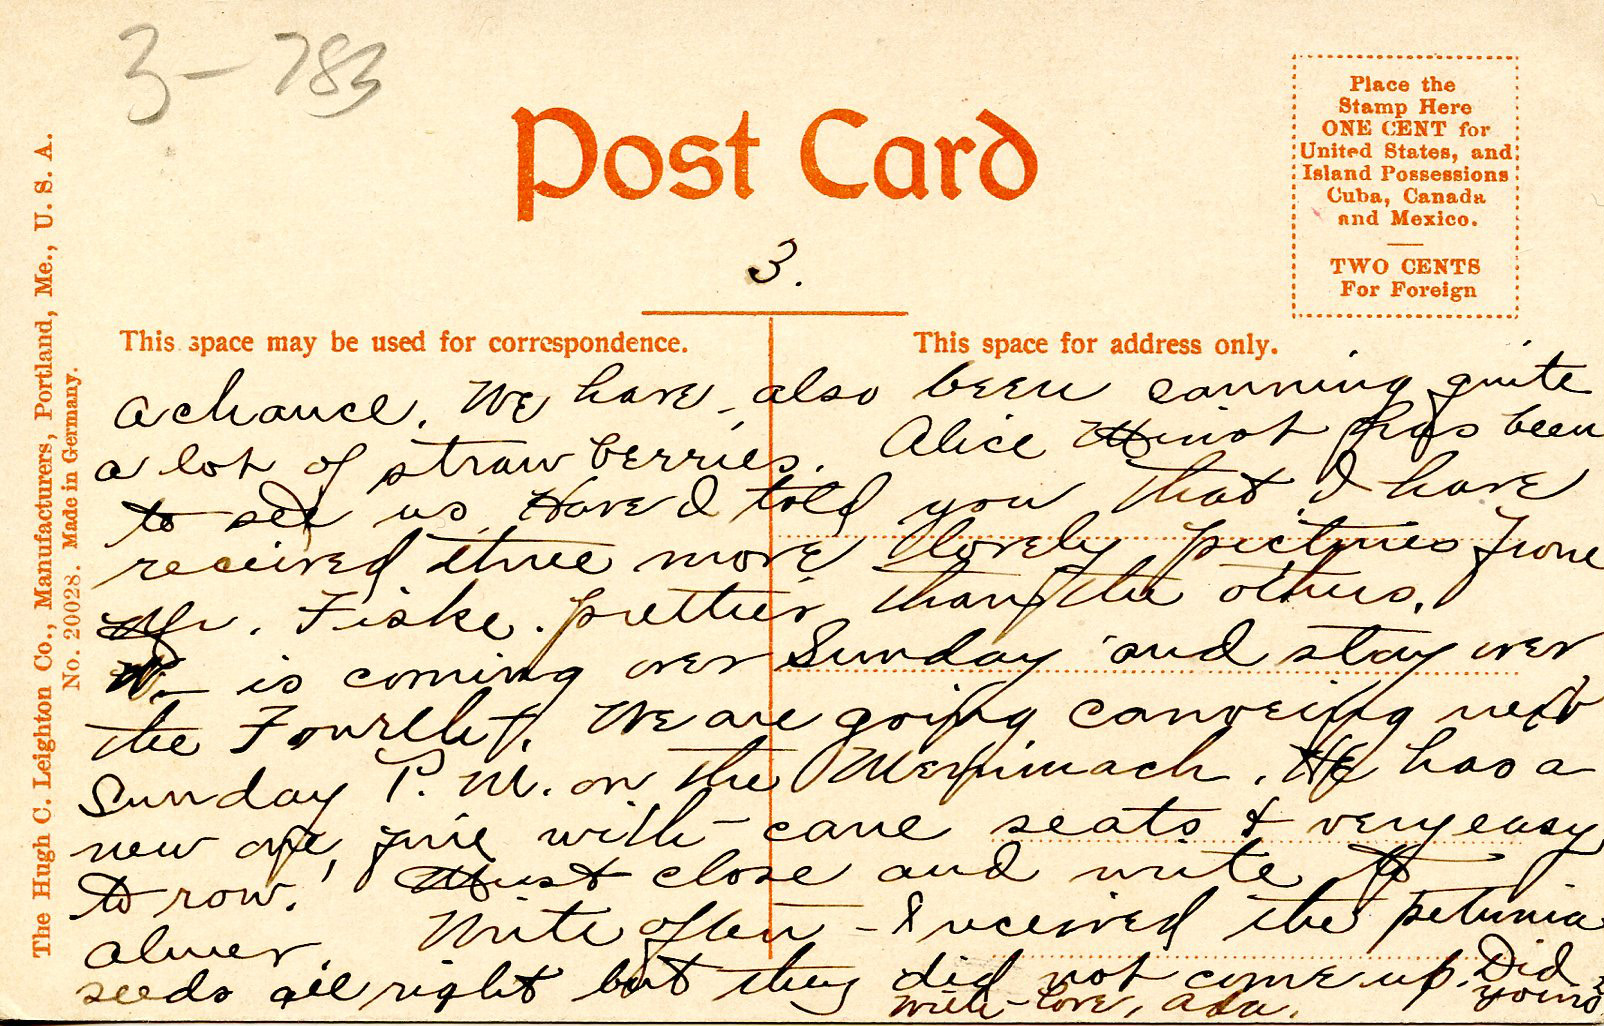 3-783
Post Card
Place the
Stamp Here
ONE CENT for
United States, and
Island Possessions
Cuba, Canada
and Mexico.
TWO CENTS
For Foreign
3.
This space may be used for correspondence.
This space for address only.
The Hugh C. Leighton Co., Manufacturers, Portland, Me., U. S. A.
No. 20028. Made in Germany.
a chance. We have also been canning quite
a lot of strawberries. Alice Minot has been
to see us. Have I told you that I have
received three more lovely pictures from
Mr. Fiske. prettier than the others.
is coming over Sunday and stay over
the Fourth. We are going canoeing next
Sunday P. M. on the Merrimack. He has a
new one, fine with cane seats & very easy
to row! Must close and write to
Write often - I received the petunia
seeds all right but they did not come up. Did
yours?
with-love, Ada.